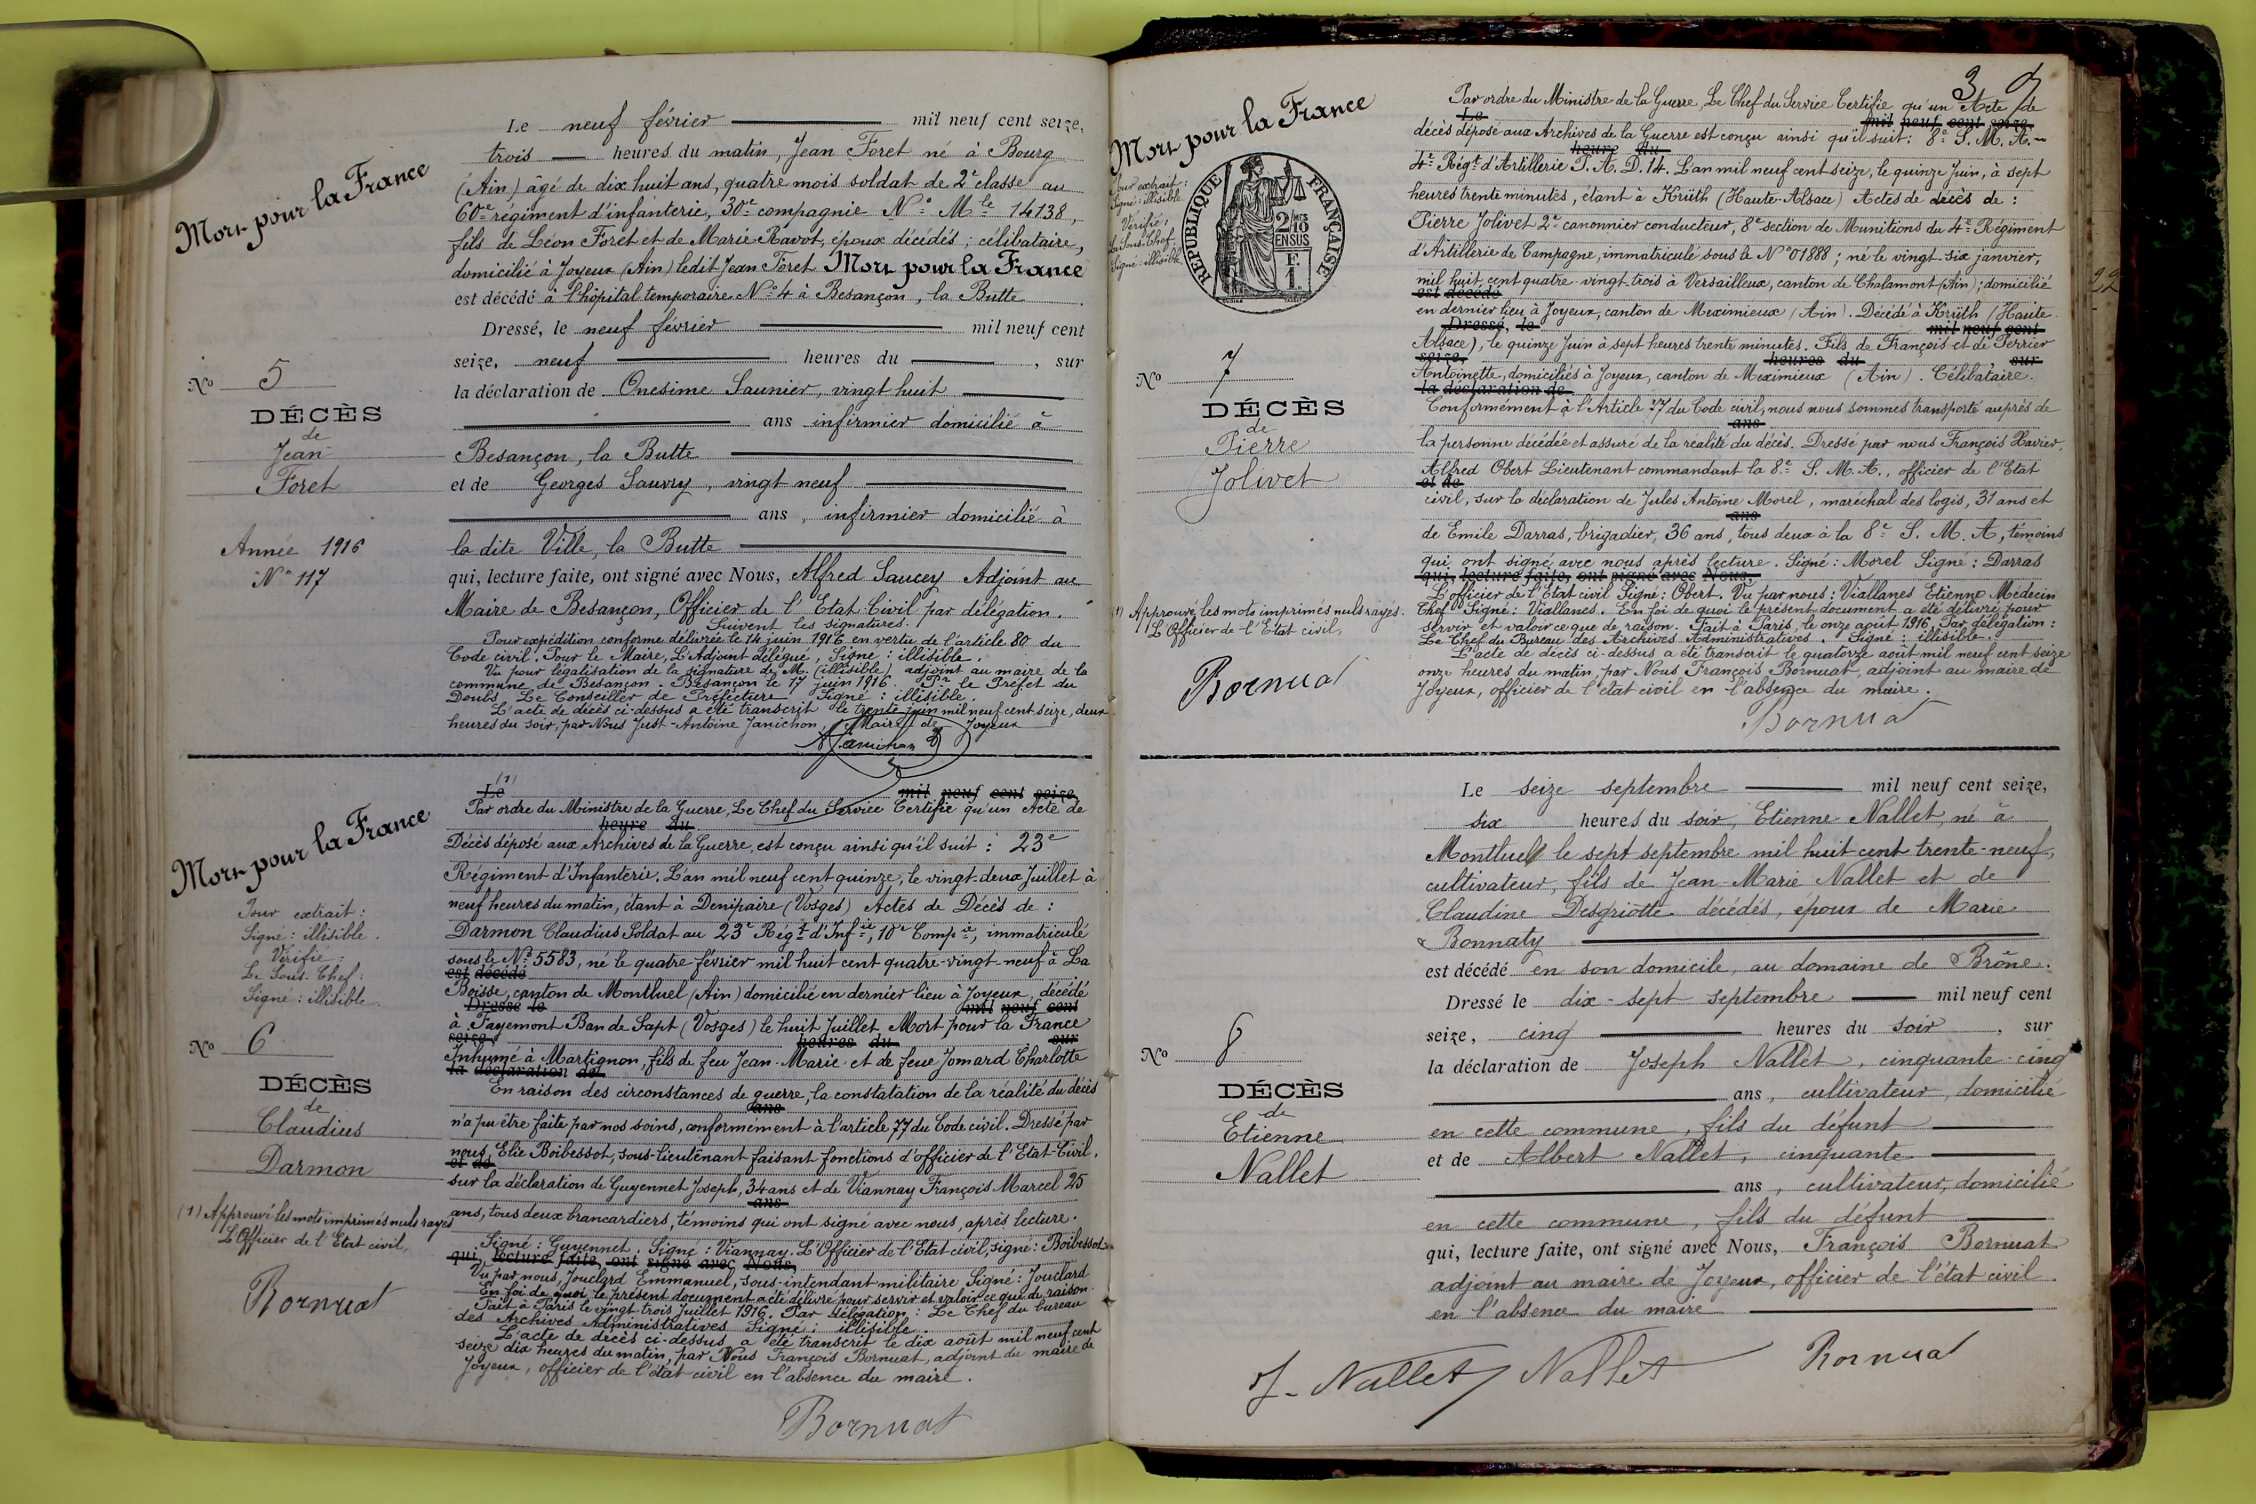 Mort pour la France
No 5
DÉCÈS
de
Jean
Foret
Année 1916
N° 117
Le neuf février mil neuf cent seize,
trois heures du matin, Jean Foret né à Bourg
(Ain) âgé de dix huit ans, quatre mois soldat de 2e classe au
60e régiment d'infanterie, 30e compagnie N° Mle 14138,
fils de Léon Foret et de Marie Ravot, époux décédés ; célibataire,
domicilié à Joyeux (Ain) ledit Jean Foret Mort pour la France
est décédé à l'hôpital temporaire N° 4 à Besançon, la Butte
Dressé, le neuf février mil neuf cent
seize, neuf heures du , sur
la déclaration de Onesime Saunier, vingt huit
ans infirmier domicilié à
Besançon, la Butte
et de Georges Sauvry, vingt neuf
ans, infirmier domicilié à
la dite Ville, la Butte
qui, lecture faite, ont signé avec Nous, Alfred Saucey Adjoint au
Maire de Besançon, Officier de l'Etat-Civil par délégation.
Suivent les signatures.
Pour expédition conforme délivrée le 14 juin 1916 en vertu de l'article 80 du
Code civil. Pour le Maire, L'Adjoint délégué, Signé : illisible.
Vu pour légalisation de la signature de M. (illisible) adjoint au maire de la
commune de Besançon. Besançon le 17 juin 1916. Pr le Préfet du
Doubs Le Conseiller de Préfecture Signé : illisible.
L'acte de décès ci-dessus a été transcrit le trente juin mil neuf cent seize, deux
heures du soir, par Nous Just-Antoine Janichon, Maire de Joyeux
Janichon
Mort pour la France
Pour extrait :
Signé : illisible.
Vérifié :
Le Sous-Chef :
Signé : illisible.
No 6
DÉCÈS
de
Claudius
Darmon
(1) Approuvé les mots imprimés nuls rayés
L'Officier de l'Etat civil,
Bornuat
(1)
Le mil neuf cent seize,
Par ordre du Ministre de la Guerre, Le Chef du Service Certifie qu'un Acte de
heure du
Décès déposé aux Archives de la Guerre, est conçu ainsi qu'il suit : 23e
Régiment d'Infanterie. L'an mil neuf cent quinze, le vingt-deux Juillet à
neuf heures du matin, étant à Denipaire (Vosges) Actes de Décès de :
Darmon Claudius Soldat au 23e Régt d'Infie, 10e Compie, immatriculé
sous le N° 5583, né le quatre février mil huit cent quatre-vingt-neuf à La
est décédé
Boisse, canton de Montluel (Ain) domicilié en dernier lieu à Joyeux, décédé
Dressé le mil neuf cent
à Fayemont Ban de Sapt (Vosges) le huit Juillet Mort pour la France
seize, heures du sur
Inhumé à Martignon, fils de feu Jean-Marie et de feue Jomard Charlotte
la déclaration de
En raison des circonstances de guerre, la constatation de la réalité du décès
ans
n'a pu être faite par nos soins, conformément à l'article 77 du Code civil. Dressé par
nous, Elie Boibessot, sous-lieutenant faisant fonctions d'officier de l'Etat-Civil.
et de
sur la déclaration de Guyennet Joseph, 34 ans et de Viannay François Marcel 25
ans
ans, tous deux brancardiers, témoins qui ont signé avec nous, après lecture.
Signé : Guyennet. Signé : Viannay. L'Officier de l'Etat civil, signé : Boibessot
qui, lecture faite, ont signé avec Nous,
Vu par nous, Jouclard Emmanuel, sous-intendant militaire Signé : Jouclard
En foi de quoi, le présent document a été délivré pour servir et valoir ce que du raison.
Fait à Paris le vingt trois Juillet 1916. Par délégation : Le Chef du bureau
des Archives Administratives Signé : illisible.
L'acte de décès ci-dessus a été transcrit le dix août mil neuf cent
seize dix heures du matin, par Nous François Bornuat, adjoint du maire de
Joyeux, officier de l'état civil en l'absence du maire.
Bornuat
3
Mort pour la France
Pour extrait :
Signé : illisible
Vérifié,
Le Sous-Chef
Signé : illisible
RÉPUBLIQUE FRANÇAISE
2/10 EN SUS
1 F.
No 7
DÉCÈS
de
Pierre
Jolivet
(1) Approuvé les mots imprimés nuls rayés.
L'Officier de l'Etat civil,
Bornuat
Par ordre du Ministre de la Guerre, Le Chef du Service Certifie qu'un Acte de
Le mil neuf cent seize
décès déposé aux Archives de la Guerre est conçu ainsi qu'il suit : 8e S. M. A.
heure du
4e Régt d'Artillerie P. A. D. 14. L'an mil neuf cent seize, le quinze Juin, à sept
heures trente minutes, étant à Krüth (Haute-Alsace) Actes de décès de :
Pierre Jolivet 2e canonnier conducteur, 8e section de Munitions du 4e Régiment
d'Artillerie de Campagne, immatriculé sous le N° 01888 ; né le vingt-six janvier,
mil huit cent quatre-vingt-trois à Versailleux, canton de Chalamont (Ain) ; domicilié
est décédé
en dernier lieu à Joyeux, canton de Meximieux (Ain). Décédé à Krüth (Haute-
Dressé, le mil neuf cent
Alsace), le quinze Juin à sept heures trente minutes. Fils de François et de Perrier
seize, heures du sur
Antoinette, domiciliés à Joyeux, canton de Meximieux (Ain). Célibataire.
la déclaration de
Conformément à l'Article 77 du Code civil, nous nous sommes transporté auprès de
ans
la personne décédée et assuré de la réalité du décès. Dressé par nous François Xavier
Alfred Obert Lieutenant commandant la 8e S. M. A., officier de l'Etat
et de
civil, sur la déclaration de Jules Antoine Morel, maréchal des logis, 31 ans et
ans
de Emile Darras, brigadier, 36 ans, tous deux à la 8e S. M. A, témoins
qui ont signé avec nous après lecture. Signé : Morel Signé : Darras
qui, lecture faite, ont signé avec Nous,
L'officier de l'Etat civil Signé : Obert. Vu par nous : Viallanes Etienne Médecin
Chef Signé : Viallanes. En foi de quoi le présent document a été délivré pour
servir et valoir ce que de raison. Fait à Paris, le onze août 1916, Par délégation :
Le Chef du Bureau des Archives Administratives. Signé : illisible.
L'acte de décès ci-dessus a été transcrit le quatorze août mil neuf cent seize
onze heures du matin, par Nous François Bornuat, adjoint au maire de
Joyeux, officier de l'état civil en l'absence du maire.
Bornuat
No 8
DÉCÈS
de
Etienne
Nallet
Le seize septembre mil neuf cent seize,
six heures du soir, Etienne Nallet, né à
Montluel le sept septembre mil huit cent trente-neuf,
cultivateur, fils de Jean-Marie Nallet et de
Claudine Desgriotte décédés, époux de Marie
Bonnaty
est décédé en son domicile, au domaine de Brône.
Dressé le dix-sept septembre mil neuf cent
seize, cinq heures du soir, sur
la déclaration de Joseph Nallet, cinquante-cinq
ans, cultivateur, domicilié
en cette commune, fils du défunt
et de Albert Nallet, cinquante
ans, cultivateur, domicilié
en cette commune, fils du défunt
qui, lecture faite, ont signé avec Nous, François Bornuat
adjoint au maire de Joyeux, officier de l'état civil
en l'absence du maire
J. Nallet Nallet Bornuat
22